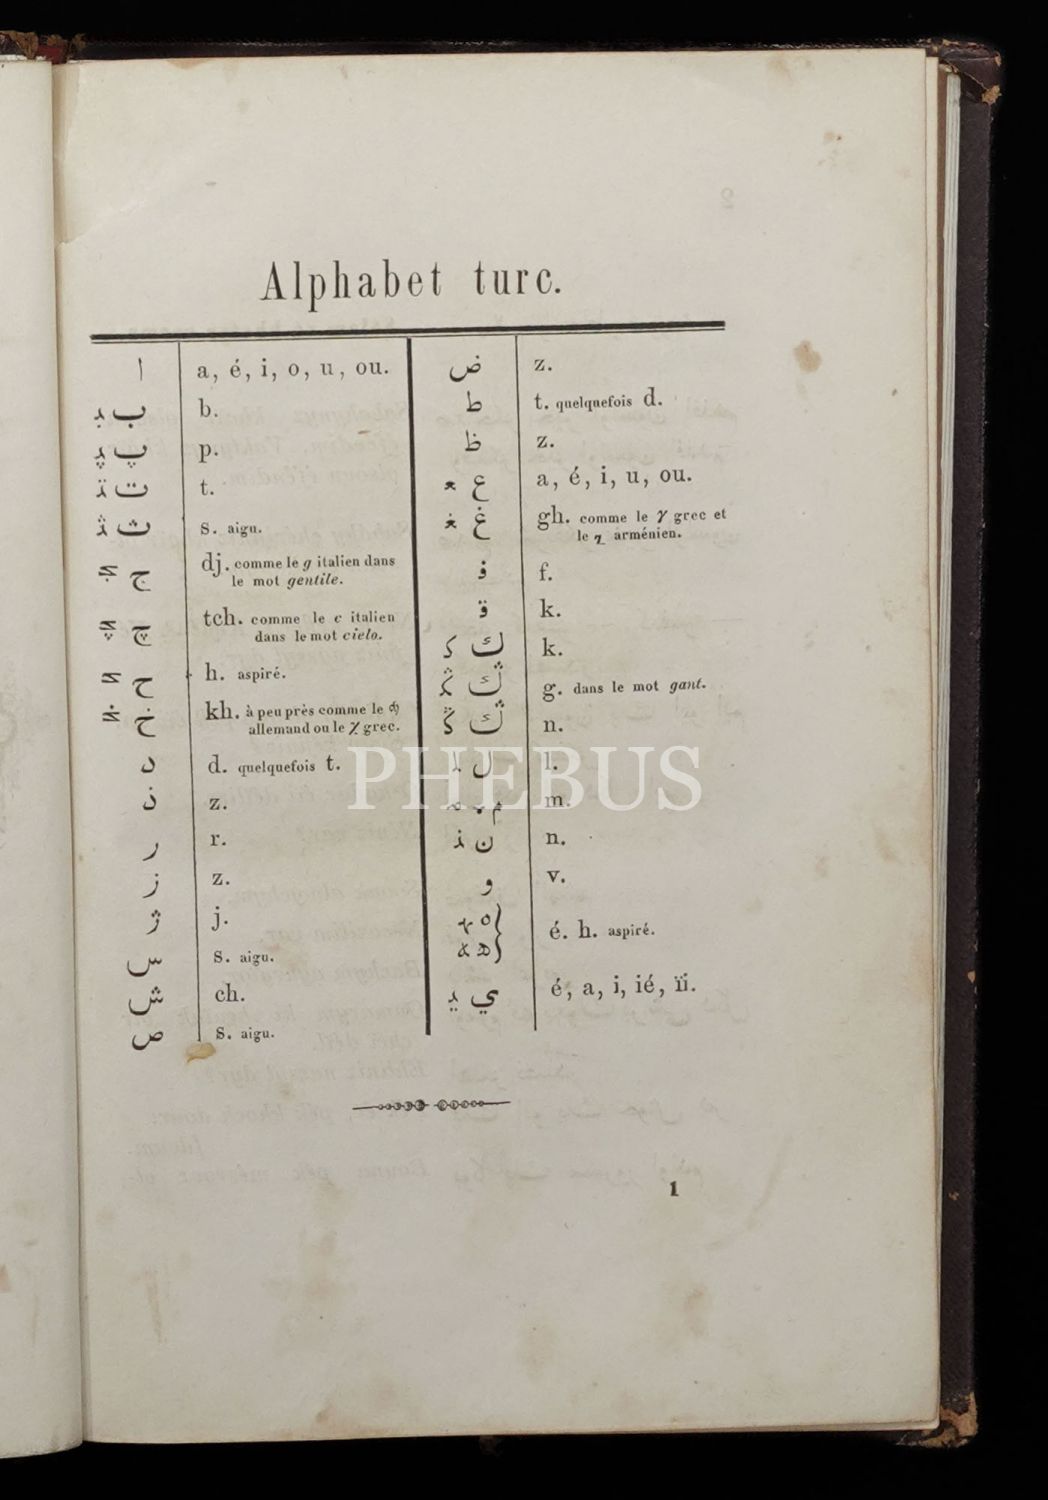 Alphabet turc.
ا a, é, i, o, u, ou.
ب بـ b.
پ پـ p.
ت تـ t.
ث ثـ s. aigu.
ج جـ dj. comme le g italien dans
le mot gentile.
چ چـ tch. comme le c italien
dans le mot cielo.
ح حـ h. aspiré.
خ خـ kh. à peu près comme le ch
allemand ou le χ grec.
د d. quelquefois t.
ذ z.
ر r.
ز z.
ژ j.
س s. aigu.
ش ch.
ص s. aigu.
ض z.
ط t. quelquefois d.
ظ z.
ع ـعـ a, é, i, u, ou.
غ ـغـ gh. comme le γ grec et
le ղ arménien.
ف f.
ق k.
ك كـ k.
g. dans le mot gant.
n.
ل لـ l.
م m.
ن نـ n.
و v.
ه é. h. aspiré.
ي يـ é, a, i, ié, ïi.
PHEBUS
1